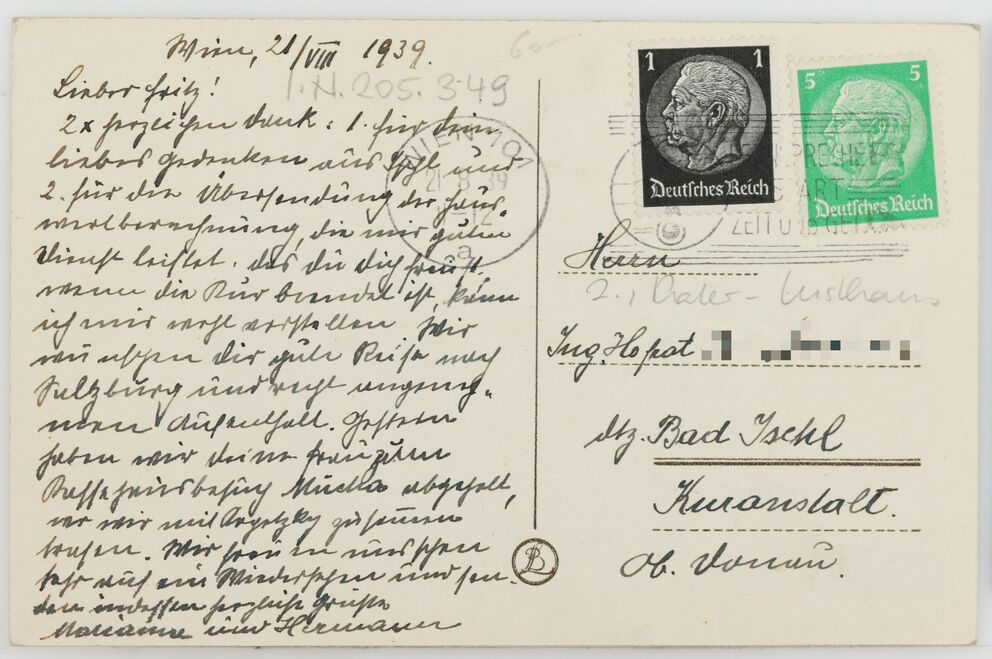 Wien, 21/VIII 1939.
60-
I.N. 205.349
Lieber Fritz!
2x herzlichen Dank: 1. für dein
liebes Gedenken aus Ischl und
2. für die Übersendung der Haus-
wertberechnung, die mir guten
Dienst leistet. Das du dich freust,
wenn die Kur beendet ist, kann
ich mir wohl vorstellen. Wir
wünschen dir gute Reise nach
Salzburg und recht angeneh-
men Aufenthalt. Gestern
haben wir deine Frau zum
Kaffeehausbesuch abgeholt,
wo wir mit zusammen
trafen. Wir freuen uns schon
sehr auf ein Wiedersehen und sen-
den indessen herzliche Grüße
Marianne und Hermann
WIEN 101
21.8.39
-12
a
1 1
Deutsches Reich
5 5
Deutsches Reich
ART
ZEIT UND GELD
Herrn
2.,
Ing. Hopat
dtz. Bad Ischl
Kuranstalt.
Ob. Donau.